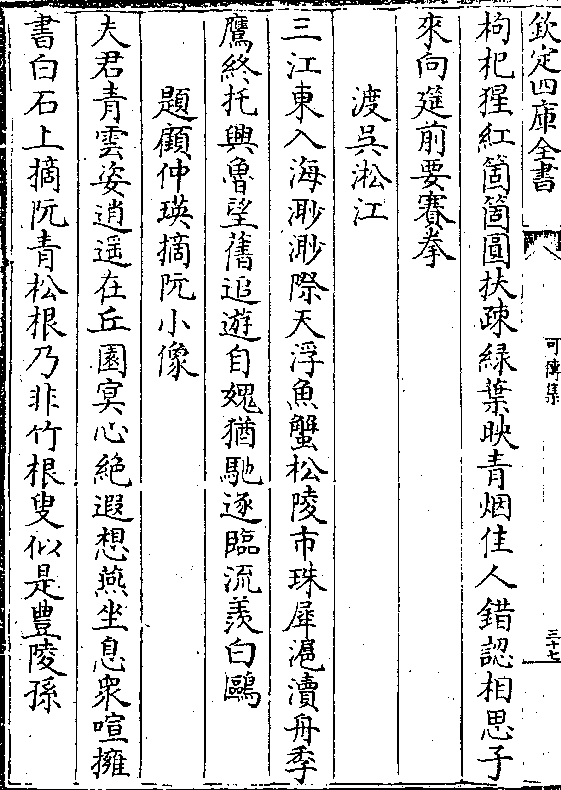 欽定四庫全書
可傳集
三十七
枸杞猩紅箇箇圓扶疎緑葉映青烟佳人錯認相思子
來向筵前要賽拳
渡吳淞江
三江東入海渺渺際天浮魚蟹松陵市珠犀滬瀆舟季
鷹終托興魯望舊追遊自媿猶馳逐臨流羨白鷗
題顧仲瑛摘阮小像
夫君青雲姿逍遥在丘園寘心絶遐想燕坐息衆喧擁
書白石上摘阮青松根乃非竹根叟似是豊陵孫